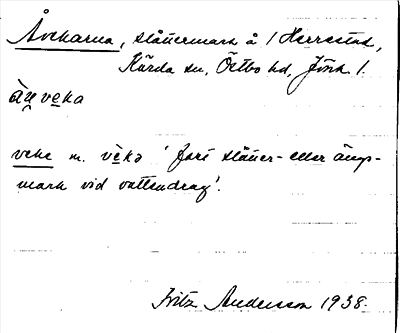 Åvekarna, slåttermark å 1 Herrestad,
Kärda sn, Östbo hd, Jönk. l.
veke m. vèkə 'fast slåtter- eller ängs-
mark vid vattendrag'.
Fritz Andersson 1938.